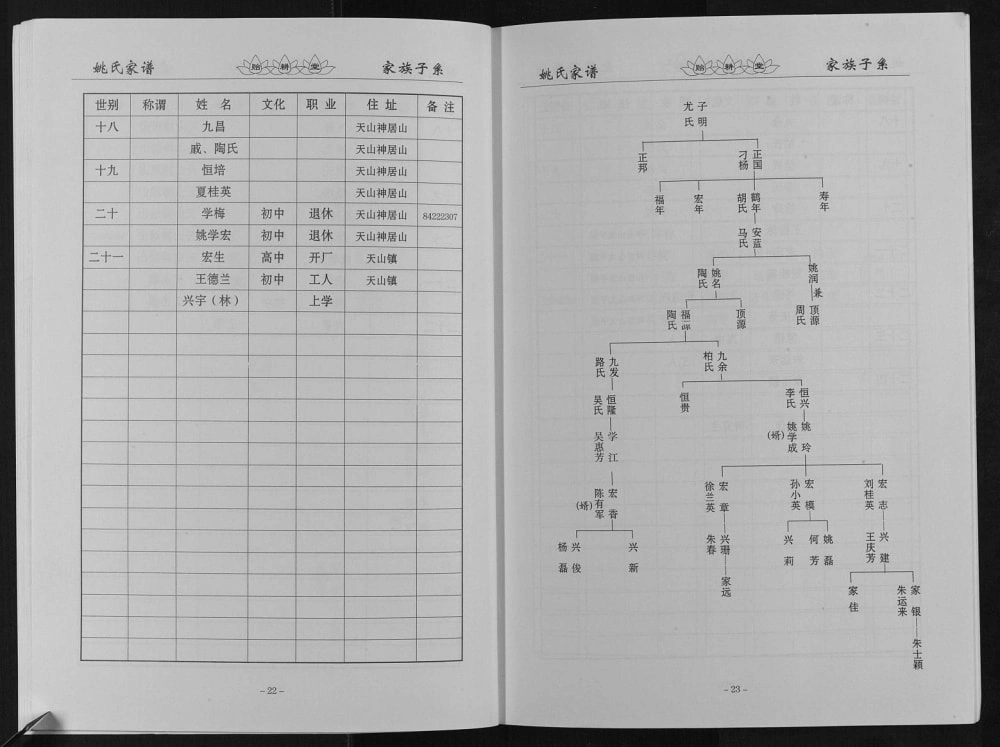 姚氏家谱 贻耕堂 家族子系
世别 称谓 姓名 文化 职业 住址 备注
十八 九昌 天山神居山
戚、陶氏 天山神居山
十九 恒培 天山神居山
夏桂英 天山神居山
二十 学梅 初中 退休 天山神居山 84222307
姚学宏 初中 退休 天山神居山
二十一 宏生 高中 开厂 天山镇
王德兰 初中 工人 天山镇
兴宇（林） 上学
- 22 -
姚氏家谱 贻耕堂 家族子系
子明 尤氏
正邦 正国 刁杨
福年 宏年 鹤年 胡氏 寿年
安蓝 马氏
姚名 陶氏 姚润
兼
福源 陶氏 顶源 顶源 周氏
九发 路氏 九余 柏氏
恒隆 吴氏 恒贵 恒兴 李氏
学江 吴惠芳 姚玲 姚学成 (婿)
宏香 陈有军 (婿) 宏章 徐兰英 宏模 孙小英 宏志 刘桂英
兴俊 杨磊 兴新 兴珊 朱春 兴莉 姚磊 何芳 兴建 王庆芳
家远 家佳 家银 朱运来
朱士颖
- 23 -